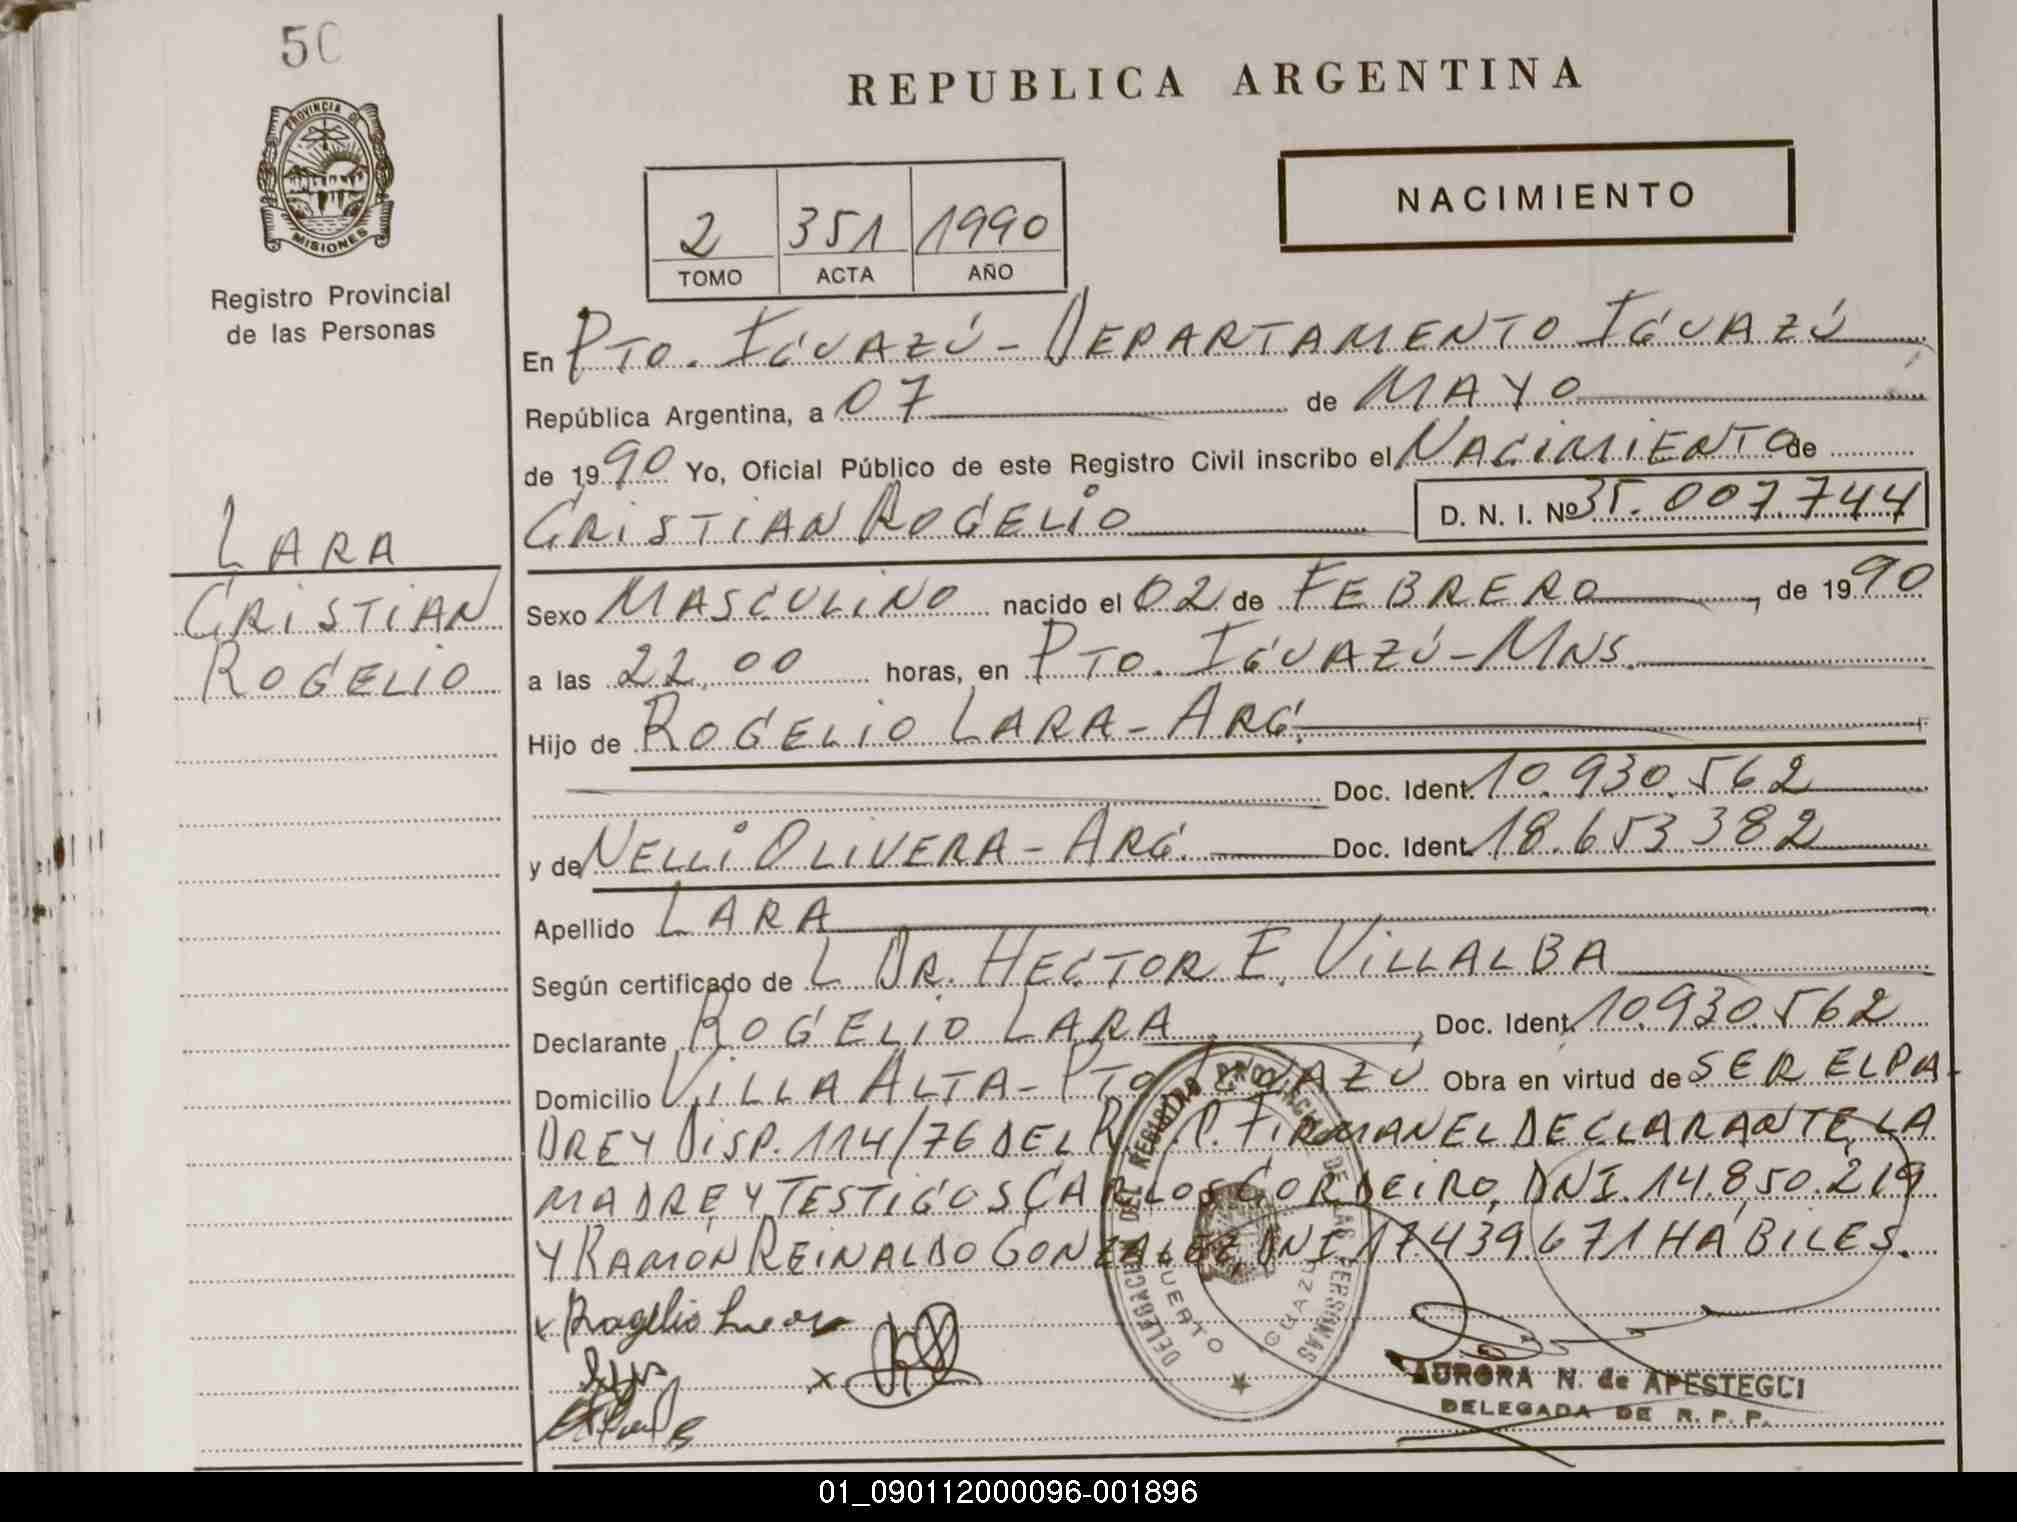 50
PROVINCIA DE
MISIONES
Registro Provincial
de las Personas
REPUBLICA ARGENTINA
NACIMIENTO
2 351 1990
TOMO ACTA AÑO
En PTO. IGUAZÚ - DEPARTAMENTO IGUAZÚ
República Argentina, a 07 de MAYO
de 1990 Yo, Oficial Público de este Registro Civil inscribo el NACIMIENTO de
CRISTIAN ROGELIO D. N. I. Nº 35.007.744
LARA
CRISTIAN
ROGELIO
Sexo MASCULINO nacido el 02 de FEBRERO, de 1990
a las 22,00 horas, en PTO. IGUAZÚ - MNS.
Hijo de ROGELIO LARA - ARG.
Doc. Ident. 10.930.562
y de NELLI OLIVERA - ARG. Doc. Ident. 18.653.382
Apellido LARA
Según certificado de L DR. HECTOR E. VILLALBA
Declarante ROGELIO LARA, Doc. Ident. 10.930.562
Domicilio VILLA ALTA - PTO IGUAZÚ Obra en virtud de SER EL PA-
DRE Y DISP. 114/76 DEL R.P.P. FIRMAN EL DECLARANTE, LA
MADRE Y TESTIGOS CARLOS CORDEIRO, DNI. 14.850.219
Y RAMÓN REINALDO GONZALEZ, DNI 17.439.671 HÁBILES.
DELEGACION DEL REGISTRO PROVINCIAL DE LAS PERSONAS
PUERTO IGUAZU
x Rogelio Lara
x
AURORA N. de APESTEGUI
DELEGADA DE R. P. P.
01_090112000096-001896